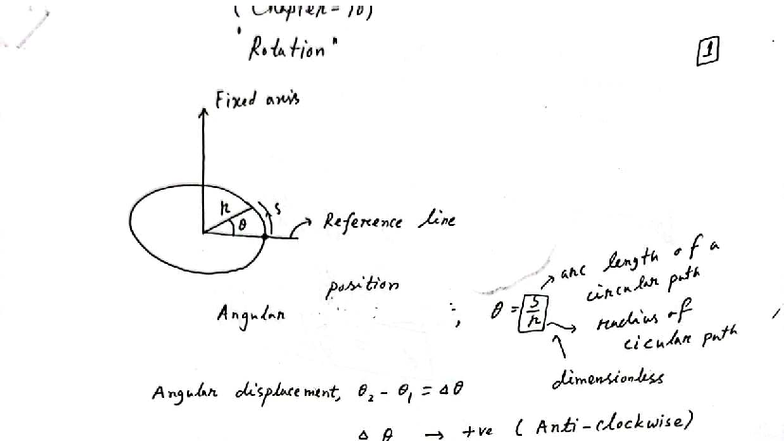 (Chapter-10)
"Rotation"
1
Fixed axis
r
θ
s
Reference line
Angular position ; θ = s/r
arc length of a circular path
radius of cicular path
dimensionless
Angular displacement, θ₂ - θ₁ = Δθ
Δθ → +ve (Anti-clockwise)